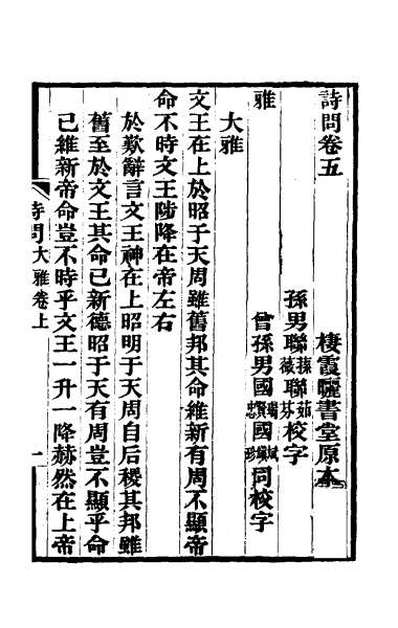 詩問卷五
棲霞曬書堂原本
孫男聯蓀聯茹聯薇聯芬校字
雅
曾孫男國賢國瑞國忠國斌國鎮國珍同校字
大雅
文王在上於昭于天周雖舊邦其命維新有周不顯帝
命不時文王陟降在帝左右
於歎辭言文王神在上昭明于天周自后稷其邦雖
舊至於文王其命已新德昭于天有周豈不顯乎命
已維新帝命豈不時乎文王一升一降赫然在上帝
詩問大雅卷上
一